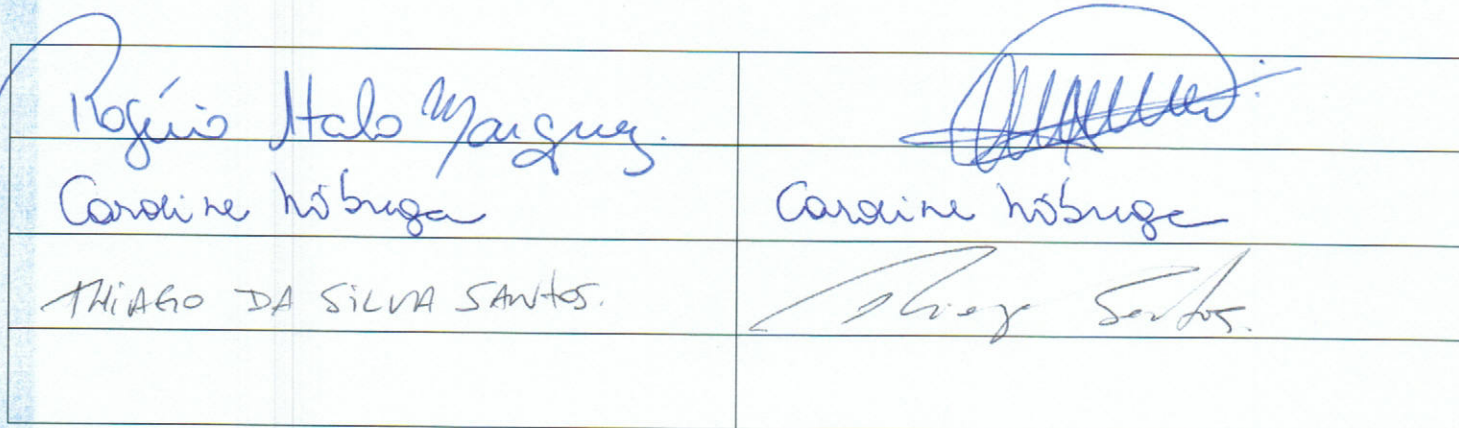 Rogério Italo Marques.
Caroline Nóbrega Caroline Nóbrega
THIAGO DA SILVA SANTOS. Thiago Santos.